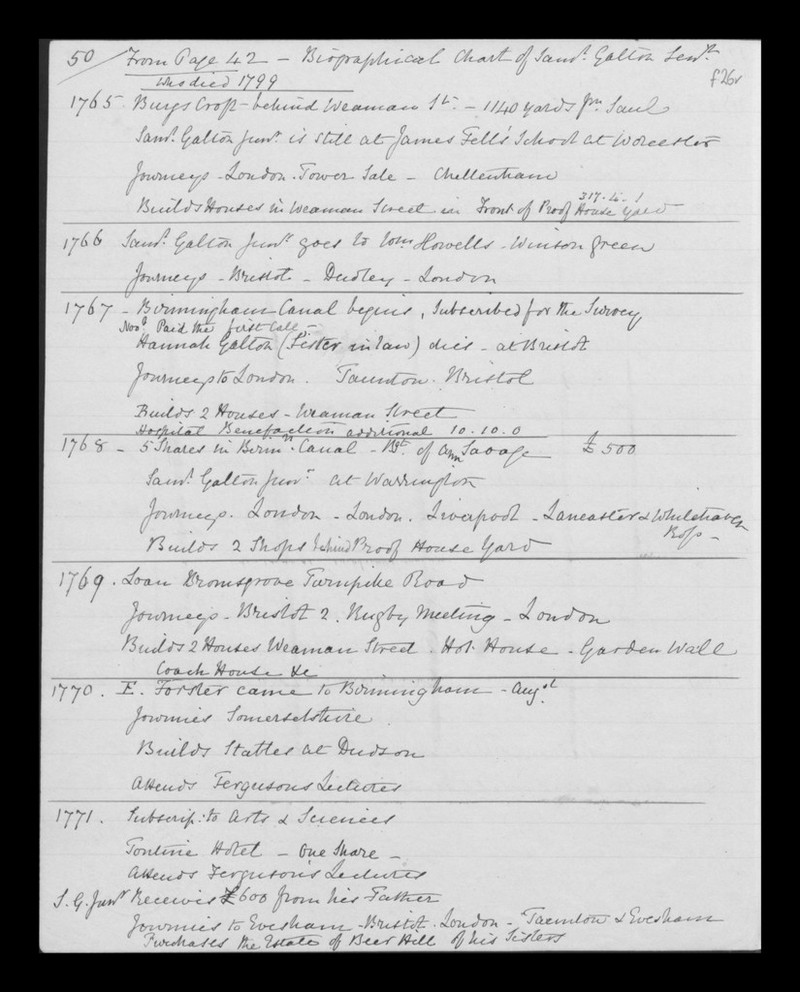 50 / From Page 42 - Biographical Chart of Saml. Galton Senr.
who died 1799
f26v
1765. Burys Croft - behind Weaman St. - 1140 yards fm Saul
Saml. Galton Junr. is still at James Fell's School at Worcester
Journeys - London. Tower Sale - Cheltenham
317. 4. 1
Builds Houses in Weaman Street in Front of Proof House Yard
1766 Saml. Galton Junr. goes to Wm Howells - Winson Green
Journeys - Bristol - Dudley - London
1767 - Birmingham Canal begins, Subscribed for the Survey
Novr. Paid the first Call -
Hannah Galton (Sister in law) dies - at Bristol
Journeys to London. Taunton. Bristol
Builds 2 Houses - Weaman Street
Hospital Benefaction additional 10.10.0
1768 - 5 Shares in Birmn. Canal - Bt. of Ann Savage £500
Saml. Galton Junr. at Warrington
Journeys. London - London. Liverpool - Lancaster & Whitehaven
Ross -
Builds 2 Shops behind Proof House Yard
1769. Loan Bromsgrove Turnpike Road
Journeys - Bristol 2. Rugby Meeting - London
Builds 2 Houses Weaman Street. Hot House - Garden Wall
Coach House &c
1770. E. Forster came to Birmingham - Augst.
Journies Somersetshire
Builds Stables at Dudson
Attends Fergusons Lectures
1771. Subscrip: to Arts & Sciences
Tontine Hotel - One Share -
Attends Ferguson's Lectures
S. G. Junr Receives £600 from his Father
Journies to Evesham - Bristol. London - Taunton & Evesham
Purchases the Estate of Beer Hill of his Sisters